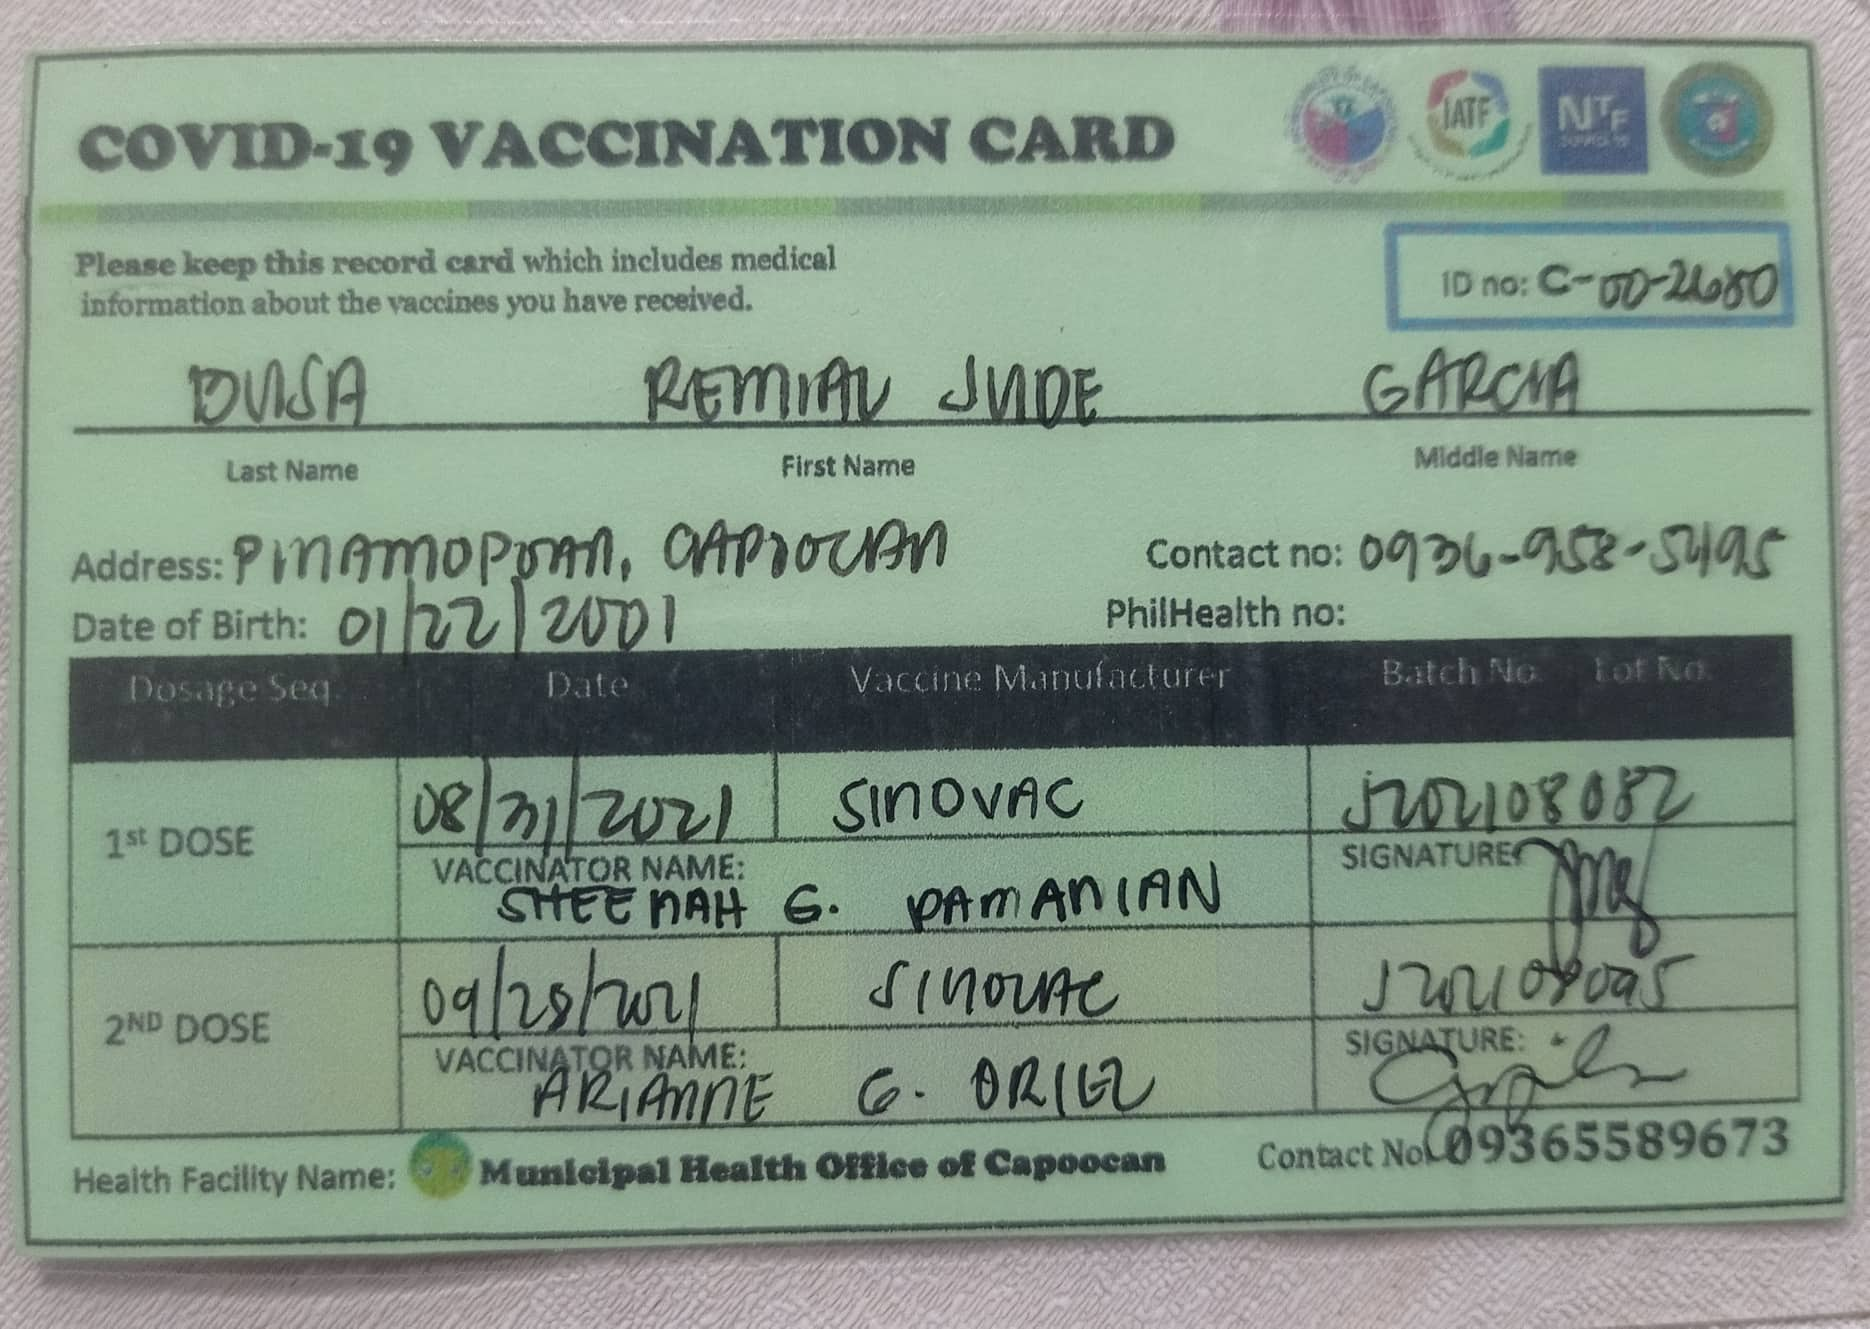 COVID-19 VACCINATION CARD
IATF
NTF
Please keep this record card which includes medical
information about the vaccines you have received.
ID no: C-00-2680
REMIAU JUDE GARCIA
Last Name First Name Middle Name
Address: PINAMOPOAN, CAPOOCAN Contact no: 0936-958-5495
Date of Birth: 01/22/2001 PhilHealth no:
Dosage Seq. Date Vaccine Manufacturer Batch No. Lot No.
1st DOSE 08/31/2021 SINOVAC J202108082
VACCINATOR NAME: SIGNATURE
SHEENAH G. DAMANIAN
2ND DOSE 09/28/2021 SINOVAC J202108095
VACCINATOR NAME: SIGNATURE:
ARIANNE G. ORIEL
Health Facility Name: Municipal Health Office of Capoocan Contact No. 09365589673